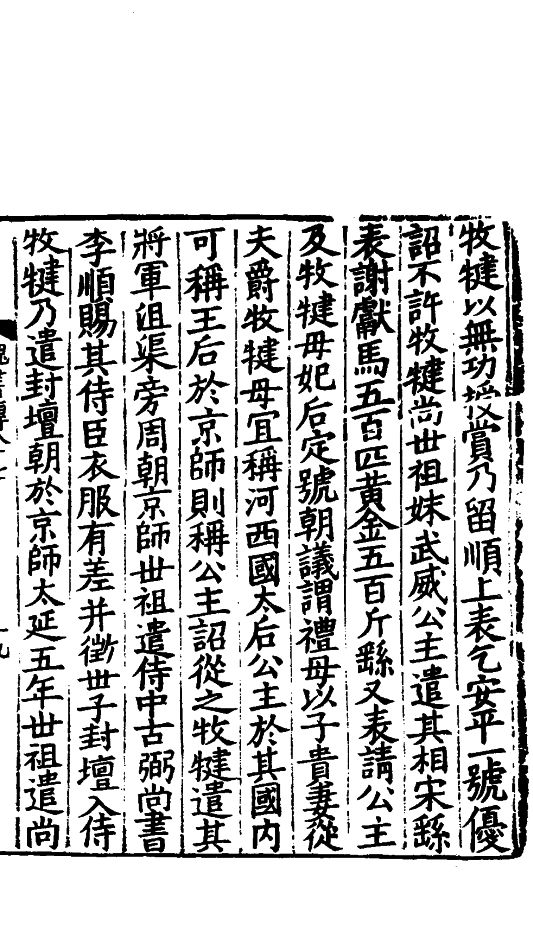 牧犍以無功授賞乃留順上表乞安平一號優
詔不許牧犍尚世祖妹武威公主遣其相宋繇
表謝獻馬五百匹黃金五百斤繇又表請公主
及牧犍母妃后定號朝議謂禮母以子貴妻從
夫爵牧犍母宜稱河西國太后公主於其國內
可稱王后於京師則稱公主詔從之牧犍遣其
將軍沮渠旁周朝京師世祖遣侍中古弼尚書
李順賜其侍臣衣服有差并徵世子封壇入侍
牧犍乃遣封壇朝於京師太延五年世祖遣尚